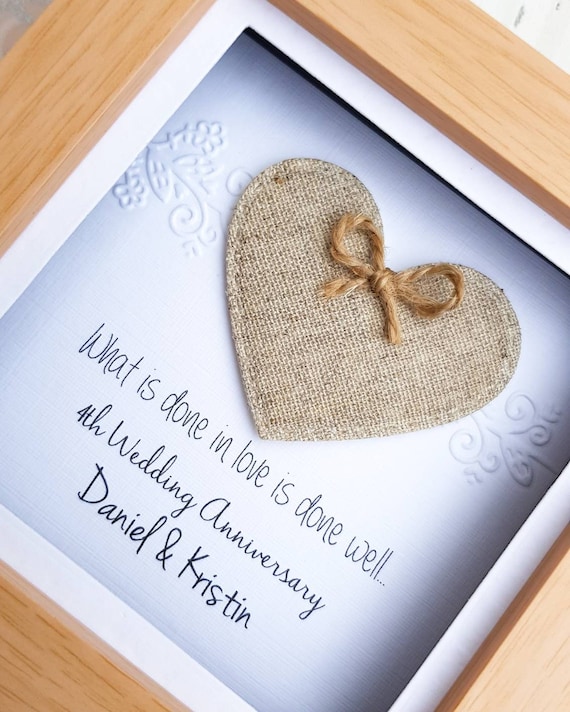 What is done in love is done well...
4th Wedding Anniversary
Daniel & Kristin